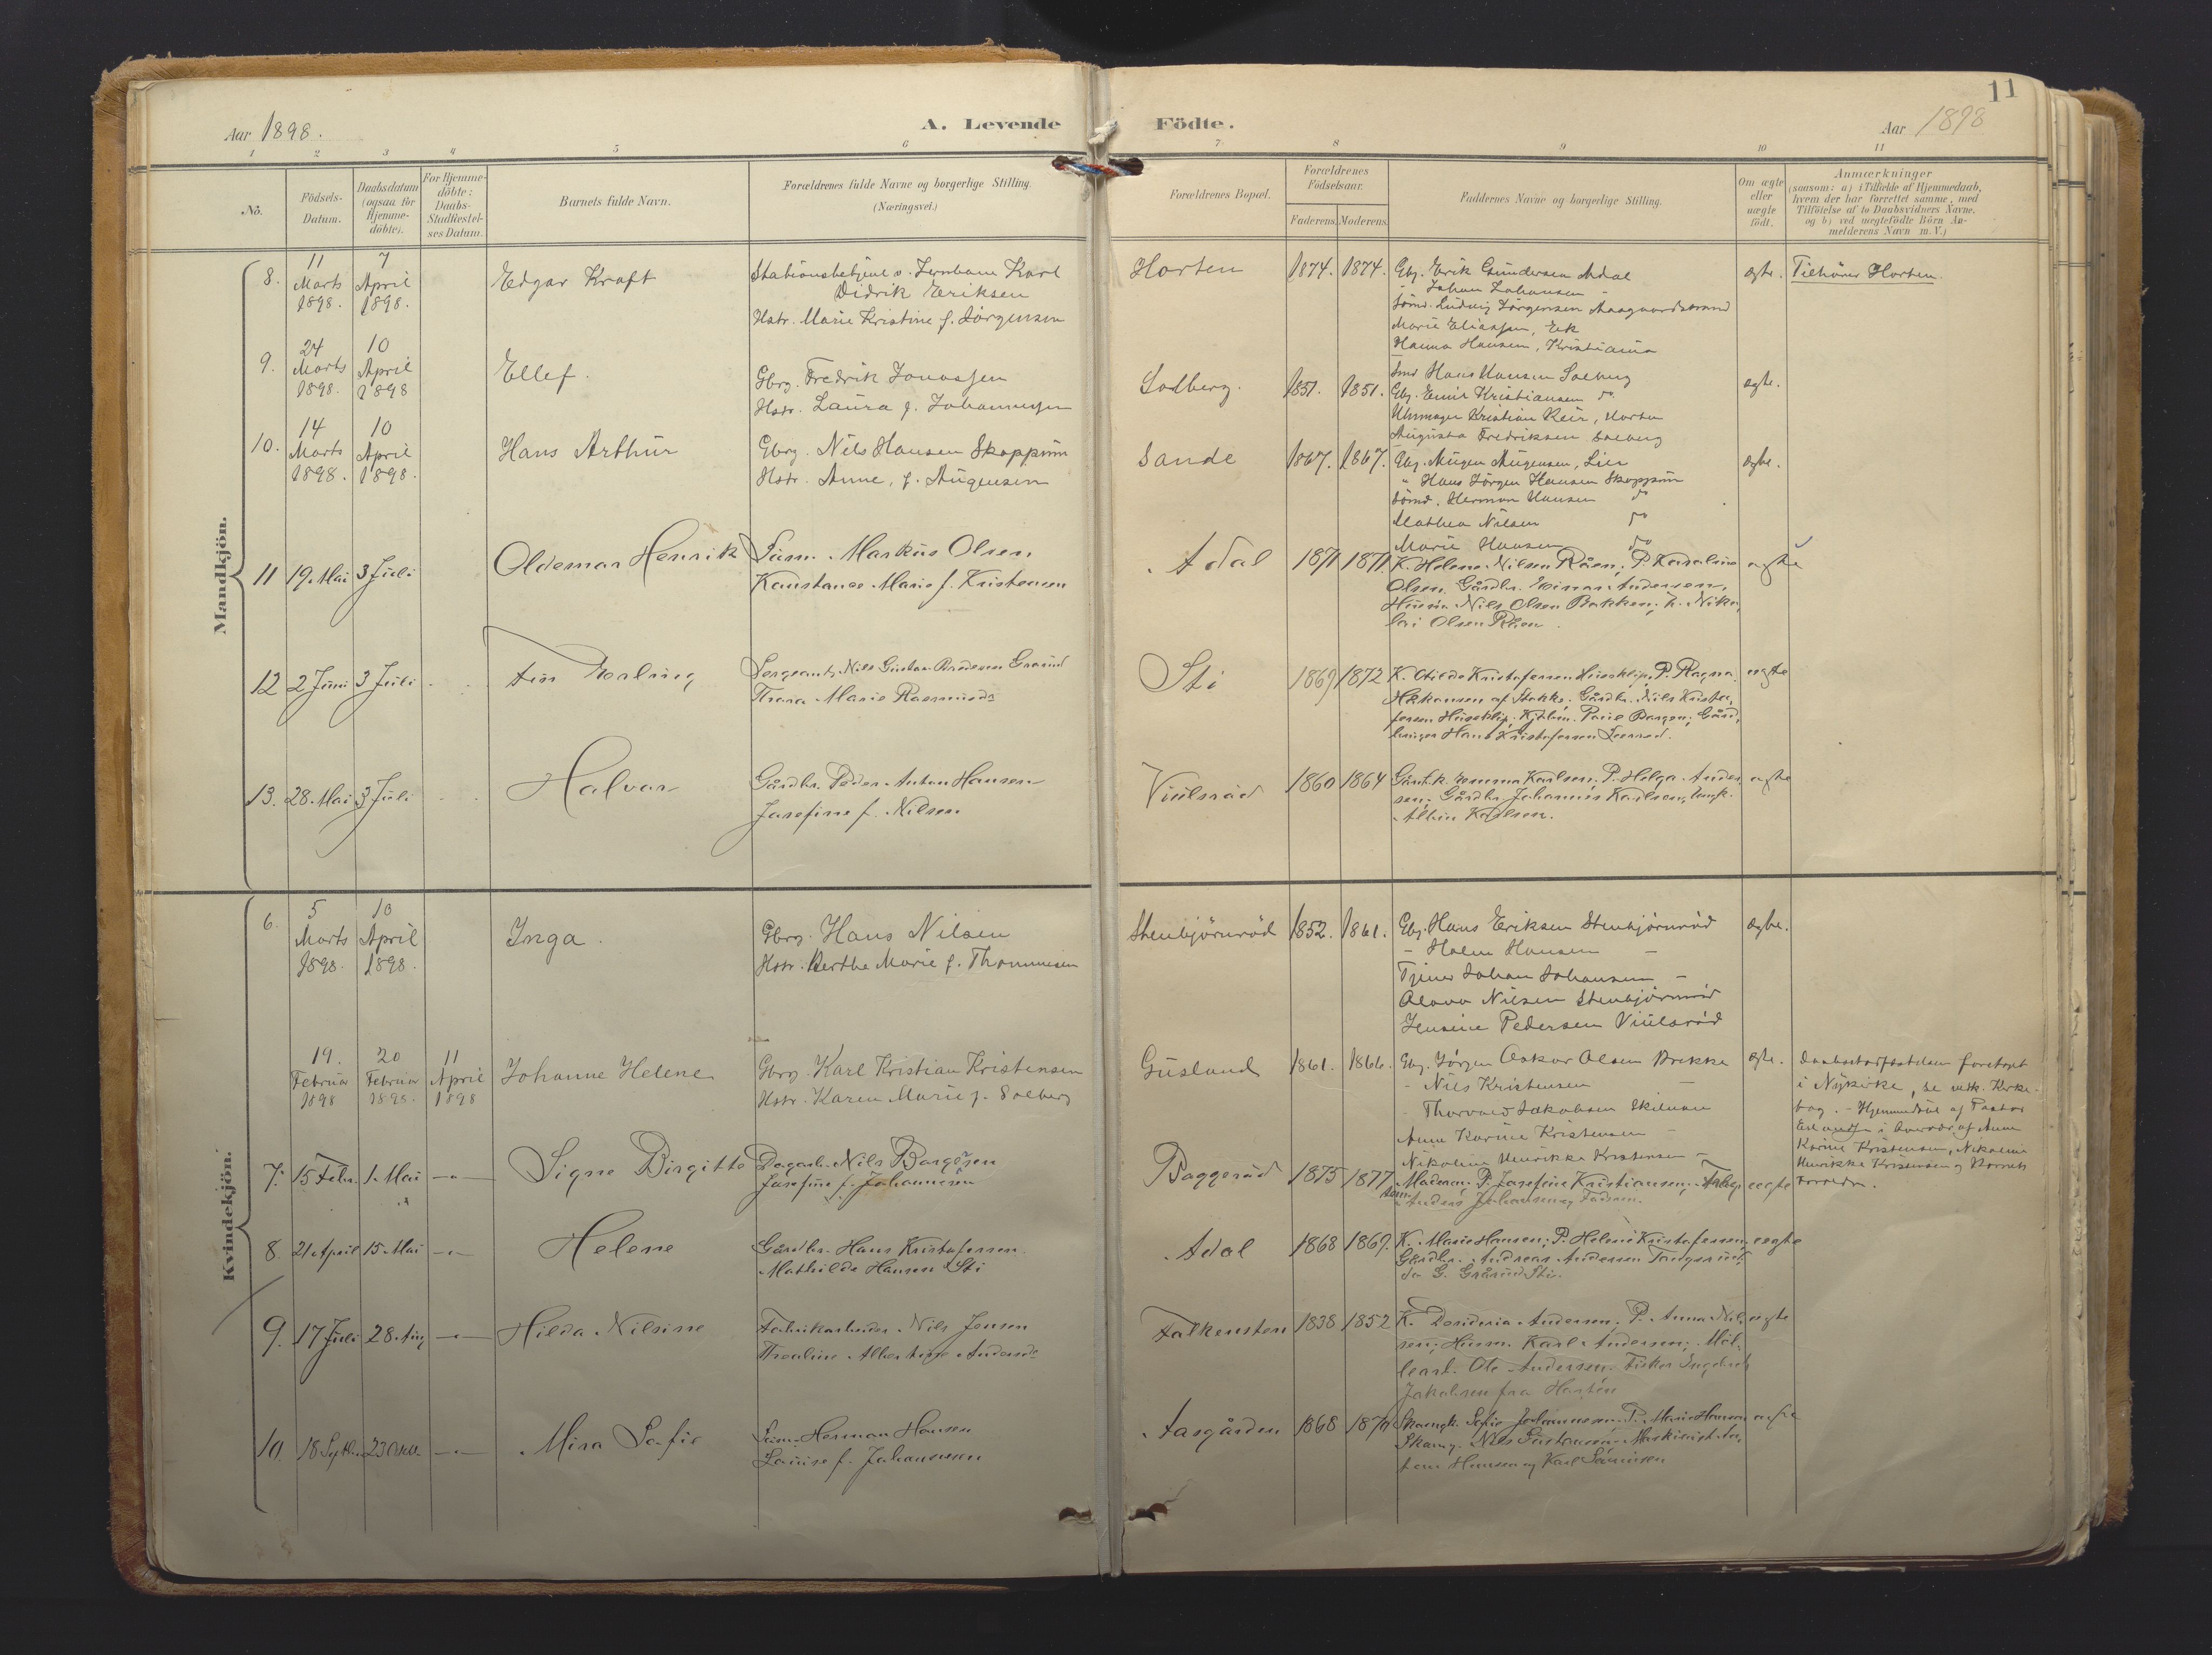 11
Aar 1898.
A. Levende Födte.
Aar 1898
1 2 3 4 5 6 7 8 9 10 11
No.
Födsels-
Datum.
Daabsdatum
(ogsaa for
Hjemme-
döbte).
For Hjemme-
döbte:
Daabs-
Stadfestel-
ses Datum.
Barnets fulde Navn.
Forældrenes fulde Navne og borgerlige Stilling.
(Næringsvei.)
Forældrenes Bopæl.
Forældrenes
Födselsaar.
Faderens. Moderens.
Faddernes Navne og borgerlige Stilling.
Om ægte
eller
uægte
födt.
Anmærkninger
(saasom: a) i Tilfælde af Hjemmedaab,
hvem der har forrettet samme, med
Tilföielse af to Daabsvidners Navne.
og b) ved uægtefödte Börn An-
melderens Navn m.V.)
Mandkjön.
8.
11
Marts
1898.
7
April
1898.
Edgar Kraft
Stationsbetjent v. Jernbane Karl
Didrik Eriksen
Hstr. Marie Kristine f. Jörgensen
Horten
1874. 1874.
Gbr. Erik Gundersen Adal
" Johan Johansen "
Sömd. Ludvig Jörgensen Aasgaardstrand
Marie Eliassen, Eik
Hanna Hansen, Kristiania
ægte.
Tilhörer Horten.
9.
24
Marts
1898.
10
April
1898
Ellef.
Gbrg. Fredrik Jonassen
Hstr. Laura f. Johannessen
Solberg.
1851. 1851.
Smd Hans Hansen Solberg
Gbr. Emil Kristiansen do
Uhrmager Kristian Reir, Horten
Augusta Fredriksen Solberg
ægte.
10.
14
Marts
1898.
10
April
1898.
Hans Arthur
Gbrg. Nils Hansen Skoppum
Hstr. Anne, f. Mügensen
Sande
1867. 1867.
Gbr. Mügen Mügensen, Lier
" Hans Jörgen Hansen Skoppum
Sömd. Herman Hansen do
Mathea Nilsen do
Marie Hansen do
ægte.
11 19. Mai 3 Juli
Oldemar Henrik
Söm. Markus Olsen
Konstance Marie f. Kristensen
Adal
1871 1871.
K. Helene Nilsen Råen; P. Karoline
Olsen, Gårdbr. Einar Andersen,
Husm. Nils Olsen Bakken; U. Niko
lai Olsen Råen.
ægte
12 2 Juni 3 Juli
Finn Erling
Sergeant Nils Gustav Andersen Graarud
Thora Marie Rasmusd.
Sti
1869 1872
K. Otilde Kristofersen Huseklip; P. Ragna
Håkonsen af Stokke; Gårdbr. Nils Kristof
fersen Huseklip; Kjöbm. Paul Borgen; Gård
bruger Hans Kristofersen
ægte
13. 28. Mai 3 Juli
Halvar
Gårdbr. Peder Anton Hansen
Josefine f. Nilsen
Viulsröd
1860 1864
Gårdbr.k. Emma Karlsen, P. Helga Ander
sen; Gårdbr. Johannes Karlsen, Ungk.
Albin Karlsen.
ægte
Kvindekjön.
6.
5
Marts
1898.
10
April
1898.
Inga.
Gbrg. Hans Nilsen
Hstr. Berthe Marie f. Thommesen
Stenbjörnröd
1852. 1861.
Gbr. Hans Eriksen Stenbjörnröd
– Holm Hansen –
Tjener Johan Johansen –
Olava Nilsen Stenbjörnröd
Jensine Pedersen Viulsröd
ægte.
19.
Februar
1898
20
Februar
1898.
11
April
1898
Johanne Helene
Gbrg. Karl Kristian Kristensen
Hstr. Karen Marie f. Solberg
Gusland
1861. 1866.
Gbr. Jörgen Oskar Olsen Brekke
– Nils Kristensen –
Thorvald Jakobsen Skilnan
Anne Karine Kristensen –
Nikoline Henrikke Kristensen –
ægte.
Daabsstadfæstelsen foretaget
i Nykirke, se vedk. Kirke-
bog. – Hjemmedöbt af Pastor
i Overvær af Anne
Karine Kristensen, Nikoline
Henrikke Kristensen og Barnets
Foreldre.
7. 15 Febr. 1. Mai –"–
Signe Birgitte
Dagarb. Nils Borgesen
Josefine f. Johannesen
Baggeröd
1875 1877
Moderen; P. Josefine Kristiansen;
Anders Johansen og Faderen.
uægte
8. 21 April 15. Mai –"–
Helene
Gårdbr. Hans Kristofersen
Mathilde Hansen Sti
Adal
1868 1867.
K. Marie Hansen; P. Helene Kristofersen;
Gårdbr. Andreas Andersen Tangsrud,
do G. Grårud Sti.
ægte
9. 17 Juli 28. Aug –"–
Hilda Nilsine
Fabrikarbeider Nils Jensen
Thealine Albertine Andersd.
Falkensten
1838 1852
K. Andersen; P. Anna Nil
sen; Husm. Karl Andersen;
Ole Andersen. Fisker Engebret
Jakobsen fra Horten
ægte
10. 18 Septbr. 23 Oktbr. –"–
Mina Sofie
Söm. Herman Hansen
Lovise f. Johannesen
Aasgården
1868 1871
Skomgk. Sofie Johannesen; P. Marie Hansen
Skomg. Nils Gustavsen; Maskinist An
ton Hansen og Karl Sörensen
ægte